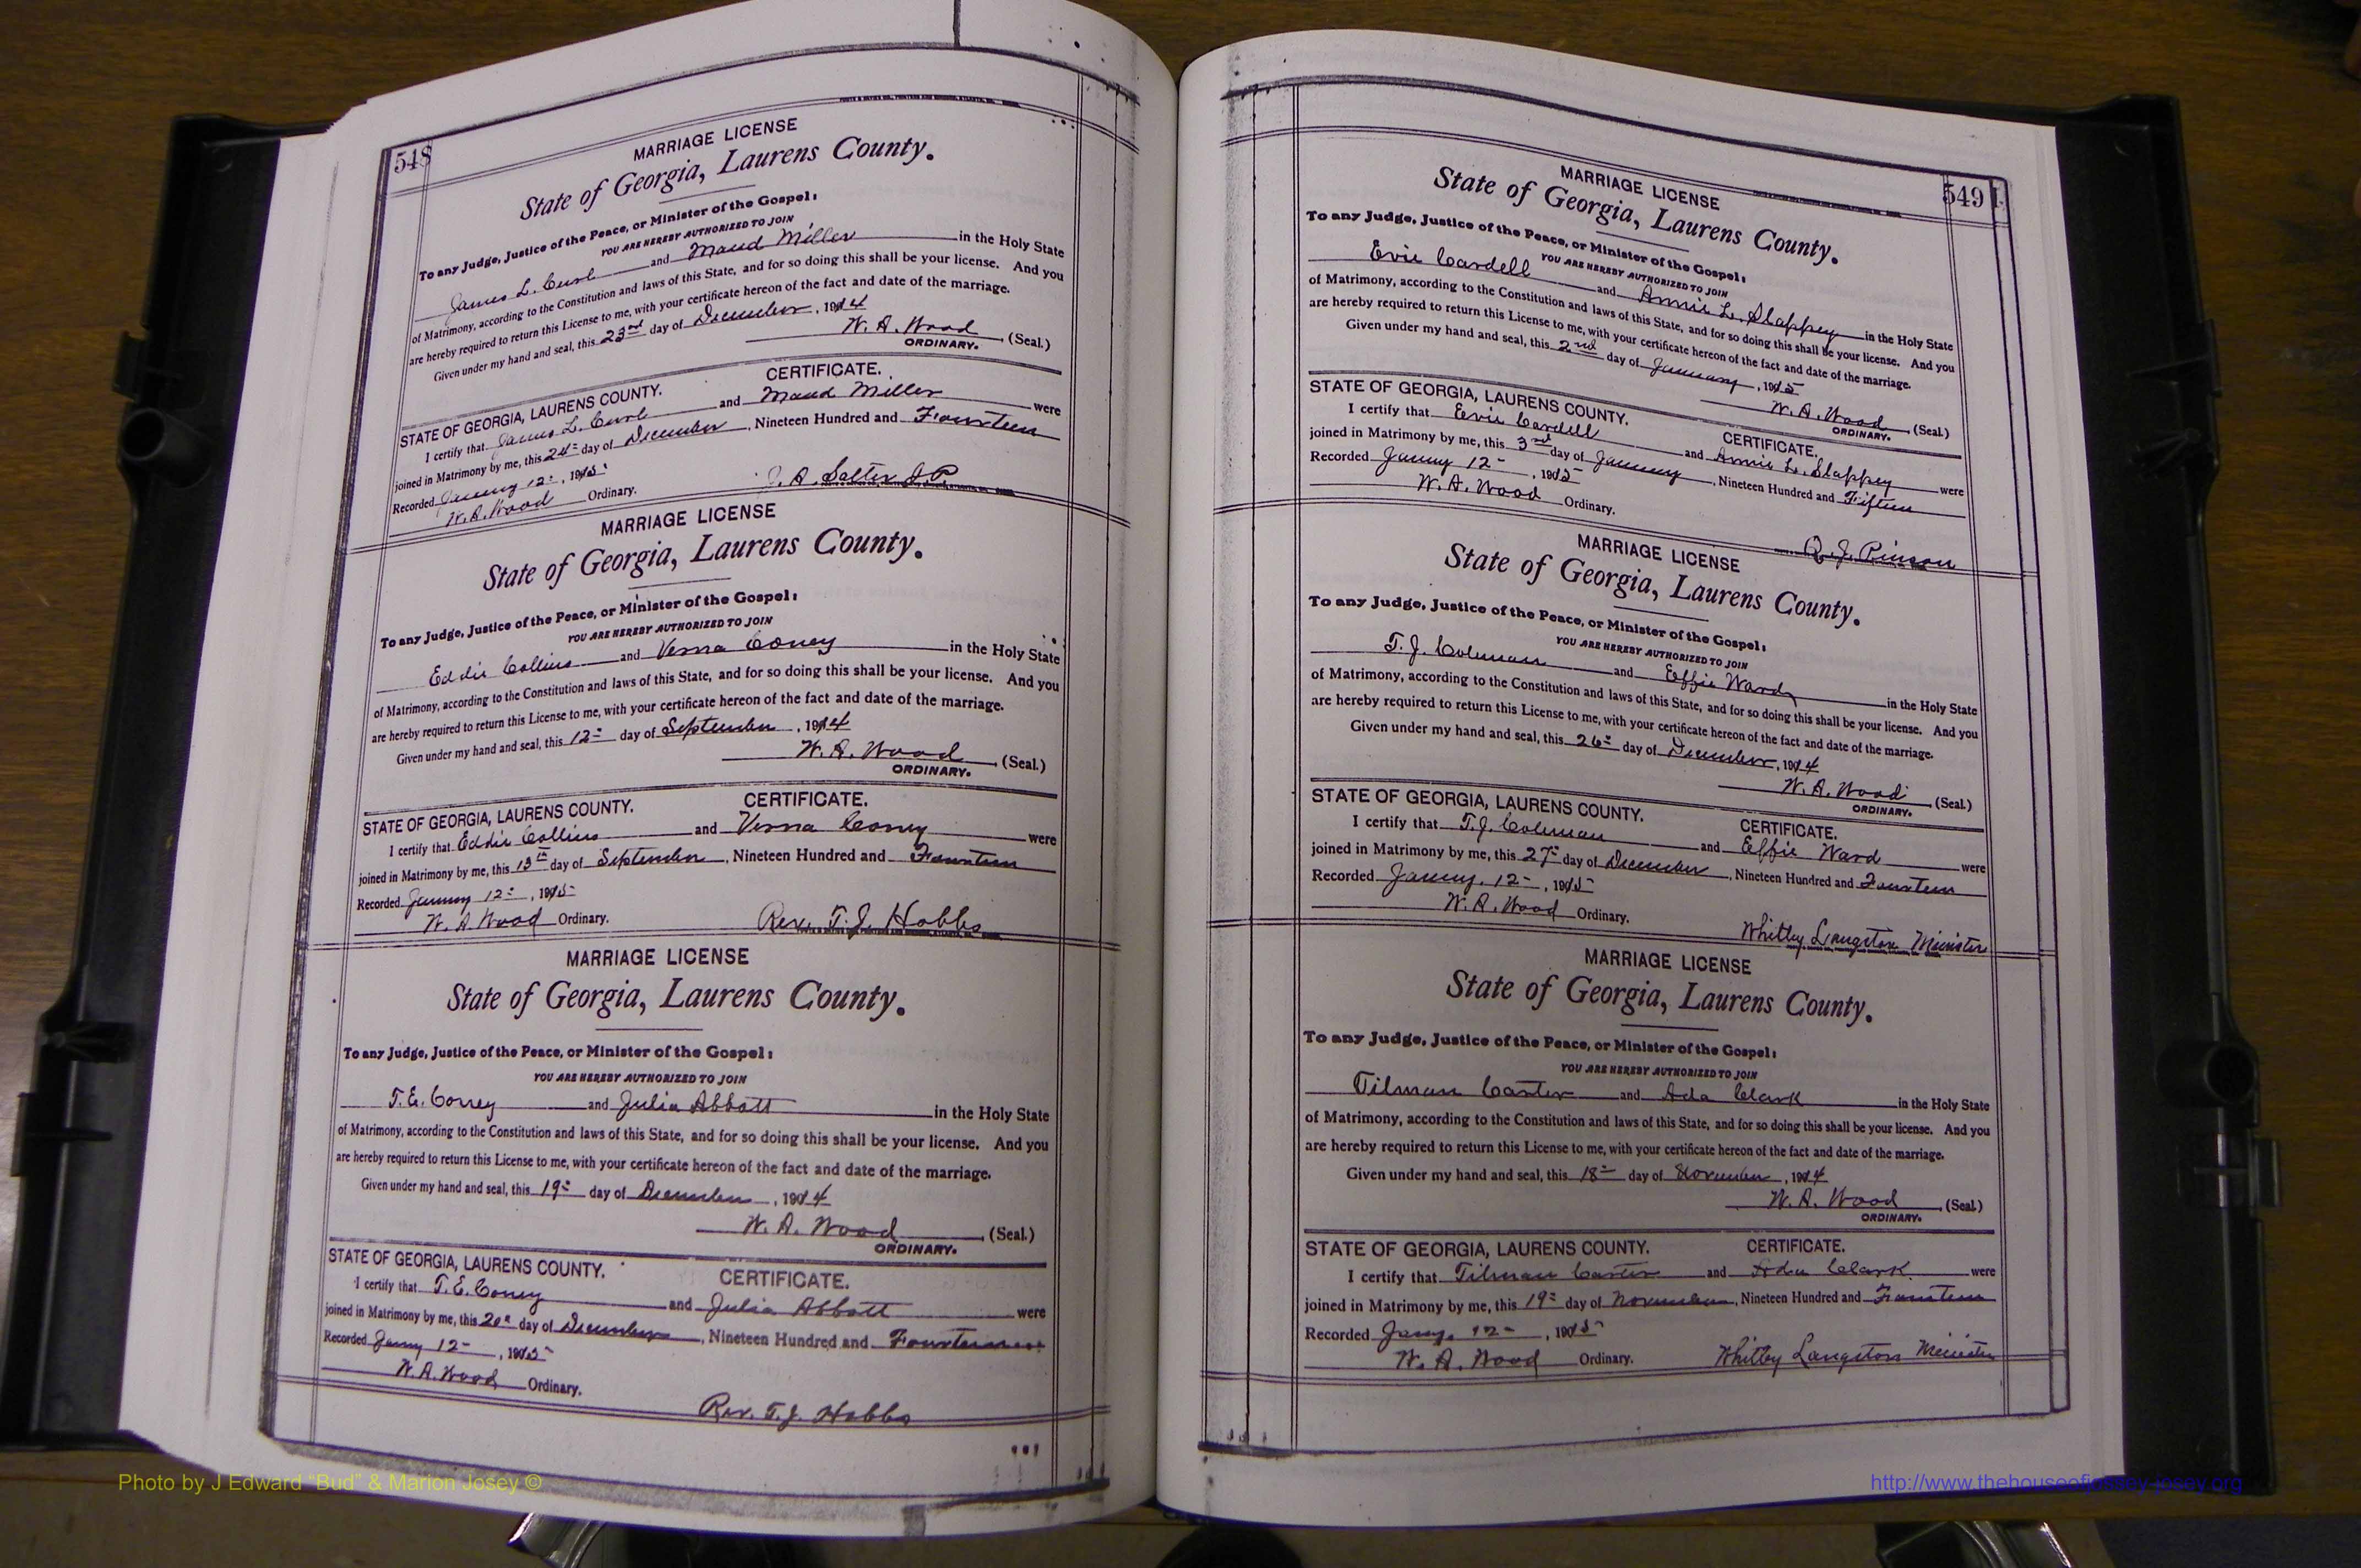 548
MARRIAGE LICENSE
State of Georgia, Laurens County.
To any Judge, Justice of the Peace, or Minister of the Gospel:
YOU ARE HEREBY AUTHORIZED TO JOIN
James L. Curl and Maud Miller in the Holy State
of Matrimony, according to the Constitution and laws of this State, and for so doing this shall be your license. And you
are hereby required to return this License to me, with your certificate hereon of the fact and date of the marriage.
Given under my hand and seal, this 23rd day of December, 1914
W. A. Wood (Seal.)
ORDINARY.
STATE OF GEORGIA, LAURENS COUNTY. CERTIFICATE.
I certify that James L. Curl and Maud Miller were
joined in Matrimony by me, this 24" day of December, Nineteen Hundred and Fourteen
Recorded January 12", 1915
W. A. Wood Ordinary.
J. A. Salter J.P.
MARRIAGE LICENSE
State of Georgia, Laurens County.
To any Judge, Justice of the Peace, or Minister of the Gospel:
YOU ARE HEREBY AUTHORIZED TO JOIN
Eddie Collins and Verna Coney in the Holy State
of Matrimony, according to the Constitution and laws of this State, and for so doing this shall be your license. And you
are hereby required to return this License to me, with your certificate hereon of the fact and date of the marriage.
Given under my hand and seal, this 12" day of September, 1914
W. A. Wood (Seal.)
ORDINARY.
STATE OF GEORGIA, LAURENS COUNTY. CERTIFICATE.
I certify that Eddie Collins and Verna Coney were
joined in Matrimony by me, this 13th day of September, Nineteen Hundred and Fourteen
Recorded January 12", 1915
W. A. Wood Ordinary.
Rev. T. J. Hobbs
MARRIAGE LICENSE
State of Georgia, Laurens County.
To any Judge, Justice of the Peace, or Minister of the Gospel:
YOU ARE HEREBY AUTHORIZED TO JOIN
T. E. Coney and Julia Abbott in the Holy State
of Matrimony, according to the Constitution and laws of this State, and for so doing this shall be your license. And you
are hereby required to return this License to me, with your certificate hereon of the fact and date of the marriage.
Given under my hand and seal, this 19" day of December, 1914
W. A. Wood (Seal.)
ORDINARY.
STATE OF GEORGIA, LAURENS COUNTY. CERTIFICATE.
I certify that T. E. Coney and Julia Abbott were
joined in Matrimony by me, this 20" day of December, Nineteen Hundred and Fourteen
Recorded Jany 12", 1915
W. A. Wood Ordinary.
Rev. T. J. Hobbs
549
MARRIAGE LICENSE
State of Georgia, Laurens County.
To any Judge, Justice of the Peace, or Minister of the Gospel:
YOU ARE HEREBY AUTHORIZED TO JOIN
Evie Cardell and Annie L. Slappey in the Holy State
of Matrimony, according to the Constitution and laws of this State, and for so doing this shall be your license. And you
are hereby required to return this License to me, with your certificate hereon of the fact and date of the marriage.
Given under my hand and seal, this 2nd day of January, 1915
W. A. Wood (Seal.)
ORDINARY.
STATE OF GEORGIA, LAURENS COUNTY. CERTIFICATE.
I certify that Evie Cardell and Annie L. Slappey were
joined in Matrimony by me, this 3rd day of January, Nineteen Hundred and Fifteen
Recorded Janny 12", 1915
W. A. Wood Ordinary.
R. J. Pinson
MARRIAGE LICENSE
State of Georgia, Laurens County.
To any Judge, Justice of the Peace, or Minister of the Gospel:
YOU ARE HEREBY AUTHORIZED TO JOIN
T. J. Coleman and Effie Ward in the Holy State
of Matrimony, according to the Constitution and laws of this State, and for so doing this shall be your license. And you
are hereby required to return this License to me, with your certificate hereon of the fact and date of the marriage.
Given under my hand and seal, this 26" day of December, 1914
W. A. Wood (Seal.)
ORDINARY.
STATE OF GEORGIA, LAURENS COUNTY. CERTIFICATE.
I certify that T. J. Coleman and Effie Ward were
joined in Matrimony by me, this 27" day of December, Nineteen Hundred and Fourteen
Recorded Janny. 12", 1915
W. A. Wood Ordinary.
Whitley Langston Minister
MARRIAGE LICENSE
State of Georgia, Laurens County.
To any Judge, Justice of the Peace, or Minister of the Gospel:
YOU ARE HEREBY AUTHORIZED TO JOIN
Tilman Carter and Ada Clark in the Holy State
of Matrimony, according to the Constitution and laws of this State, and for so doing this shall be your license. And you
are hereby required to return this License to me, with your certificate hereon of the fact and date of the marriage.
Given under my hand and seal, this 18" day of November, 1914
W. A. Wood (Seal.)
ORDINARY.
STATE OF GEORGIA, LAURENS COUNTY. CERTIFICATE.
I certify that Tilman Carter and Ada Clark were
joined in Matrimony by me, this 19" day of November, Nineteen Hundred and Fourteen
Recorded Jany. 12", 1915
W. A. Wood Ordinary. Whitley Langston Minister
Photo by J Edward “Bud” & Marion Josey ©
http://www.thehouseofjossey-josey.org